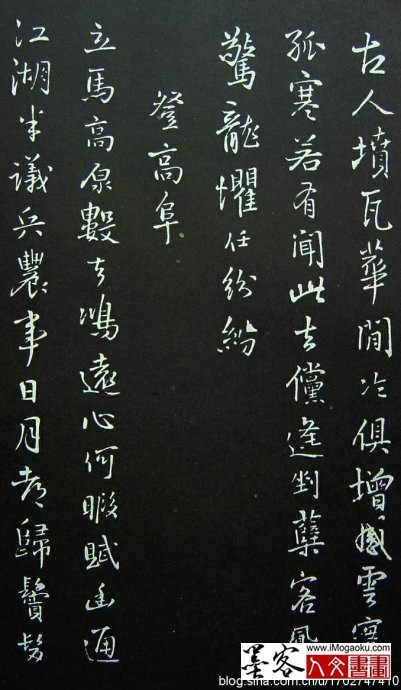 古人墳瓦華間冷俱增感雲
孤寒若有聞此去儻逢剗蘖客風
驚龍懼任紛紛
登高阜
立馬高原數去鴻遠心何暇賦幽通
江湖半議兵農事日月都歸鬢髮
墨客
www.iMogaoku.com
人文書畫
blog.sina.com.cn/u/1702747410